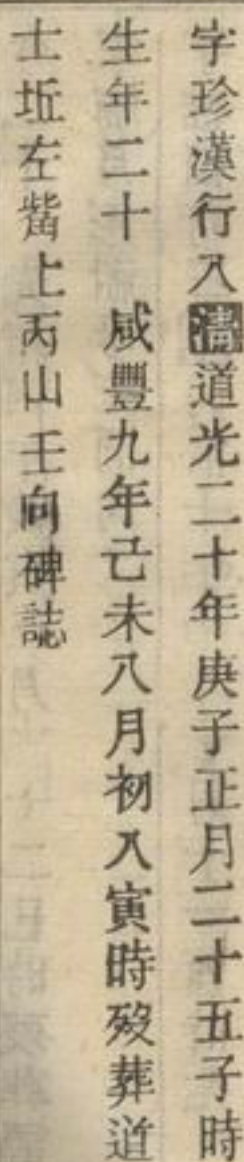 字珍漢行八清道光二十年庚子正月二十五子時
生年二十　咸豐九年己未八月初八寅時歿葬道
士坵左觜上丙山壬向碑誌